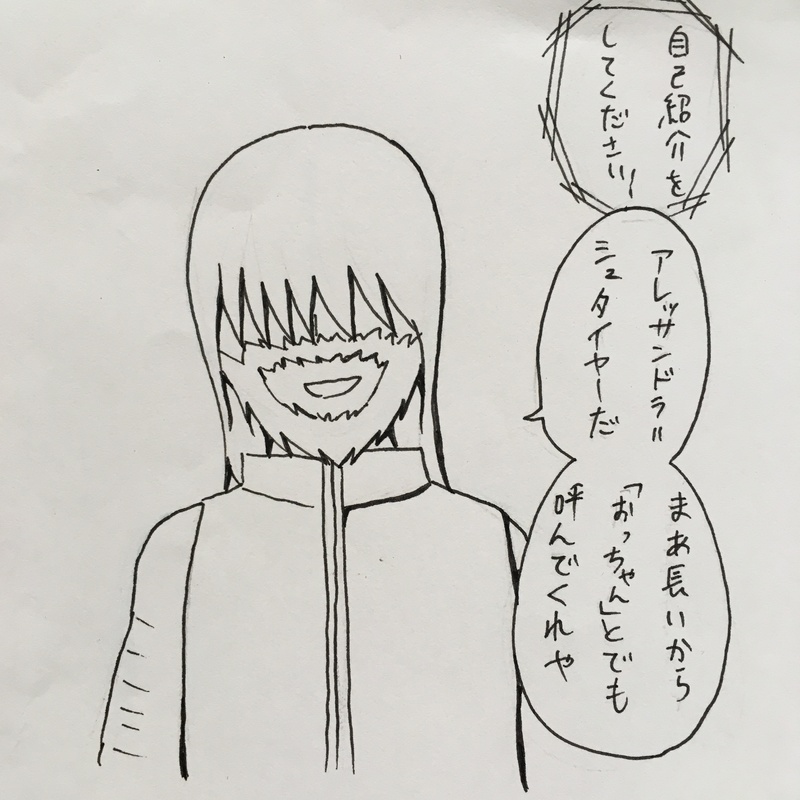 自己紹介を
してください!
アレッサンドラ=
シュタイヤーだ
まあ長いから
「おっちゃん」とでも
呼んでくれや